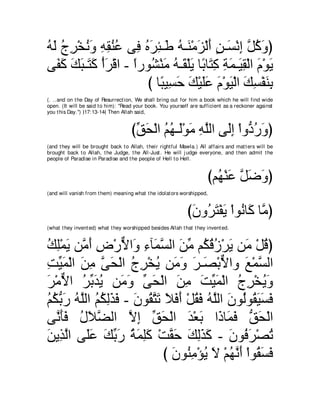 ﴿وَكُلَّ إِنْسَـنٍ أَلْزَمْنَـهُ طَـئِرَهُ فِى عُنُقِهِ وَنُخْرِجُ لَهُ
يَوْمَ الْقِيَـمَةِ كِتَابًا يَلْقَـهُ مَنْشُوراً - اقْرَأْ كَتَـبَكَ كَفَى
بِنَفْسِكَ الْيَوْمَ عَلَيْكَ حَسِيبًا ﴾
(. ..and on the Day of Resurrection, We shall bring out for him a book which he will find wide
open. (It will be said to him): "Read your book. You yourself are sufficient as a reckoner against
you this Day.'') (17:13-14) Then Allah said,
﴿وَرُدُّواْ إِلَى اللَّهِ مَوْلَـهُمُ الْحَقِّ﴾
(and they will be brought back to Allah, their rightful Mawla.) All affairs and matters will be
brought back to Allah, the Judge, the All-Just. He will judge everyone, and then admit the
people of Paradise in Paradise and the people of Hell to Hell.
﴿وَضَلَّ عَنْهُم﴾
(and will vanish from them) meaning what the idolators worshipped,
﴿مَّا كَانُواْ يَفْتَرُونَ﴾
(what they invented) what they worshipped besides Allah that they invented.
﴿قُلْ مَن يَرْزُقُكُم مِّنَ السَّمَآءِ وَالاٌّرْضِ أَمَّن يَمْلِكُ
السَّمْعَ والاٌّبْصَـرَ وَمَن يُخْرِجُ الْحَىَّ مِنَ الْمَيِّتِ
وَيُخْرِجُ الْمَيِّتَ مِنَ الْحَىِّ وَمَن يُدَبِّرُ الاٌّمْرَ
فَسَيَقُولُونَ اللَّهُ فَقُلْ أَفَلاَ تَتَّقُونَ - فَذَلِكُمُ اللَّهُ رَبُّكُمُ
الْحَقُّ فَمَاذَا بَعْدَ الْحَقِّ إِلاَّ الضَّلاَلُ فَأَنَّى
تُصْرَفُونَ - كَذَلِكَ حَقَّتْ كَلِمَةُ رَبِّكَ عَلَى الَّذِينَ
فَسَقُواْ أَنَّهُمْ لاَ يُؤْمِنُونَ ﴾